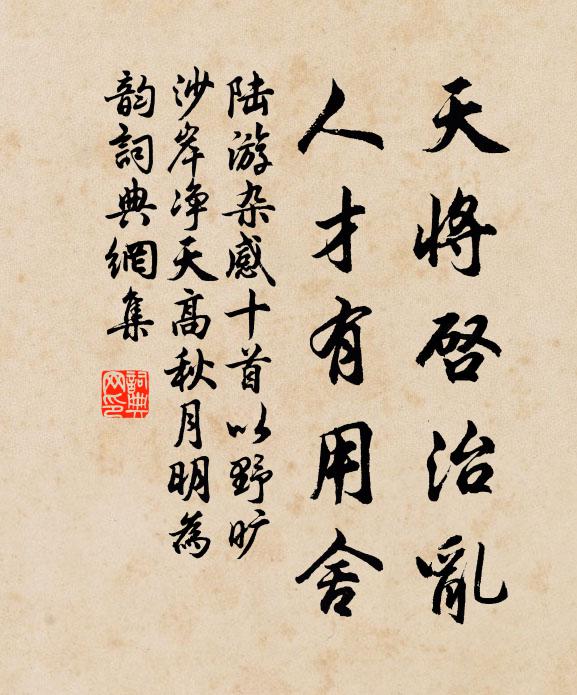 天将启治亂
人才有用舍
陆游杂感十首以野旷
沙岸净天高秋月明為
韵詞典網集
詞典網印